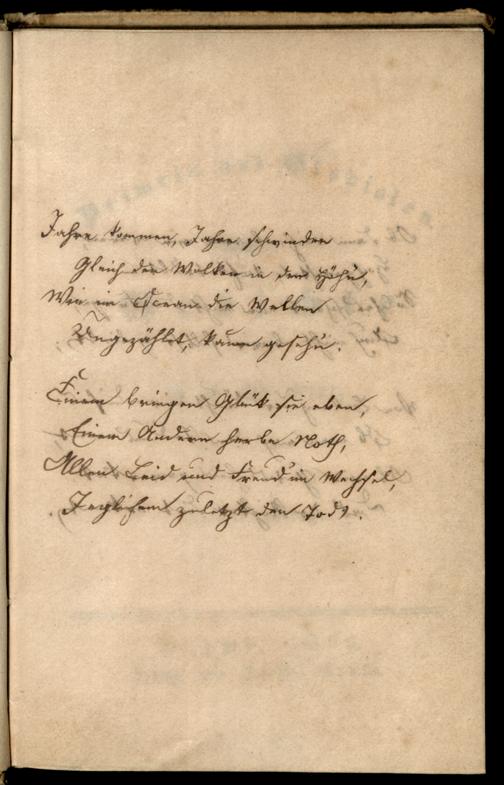 Jahre kommen, Jahre schwinden
Gleich den Wolken in den Höh'n,
Wie im Ocean die Wellen
Ungezählet, kaum geseh'n.
Einem bringen Glük sie eben,
Einem Andern herbe Noth,
Allen Leid und Freud im Wechsel,
Jeglichem zuletzt den Tod.